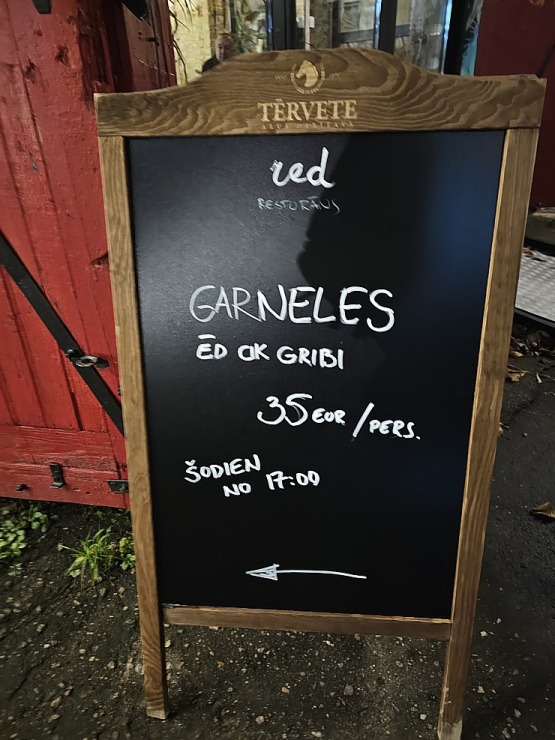 TĒRVETE
ALUS DARĪTAVA
red
RESTORĀNS
GARNELES
ĒD CIK GRIBI
35 EUR/PERS.
ŠODIEN
NO 17:00